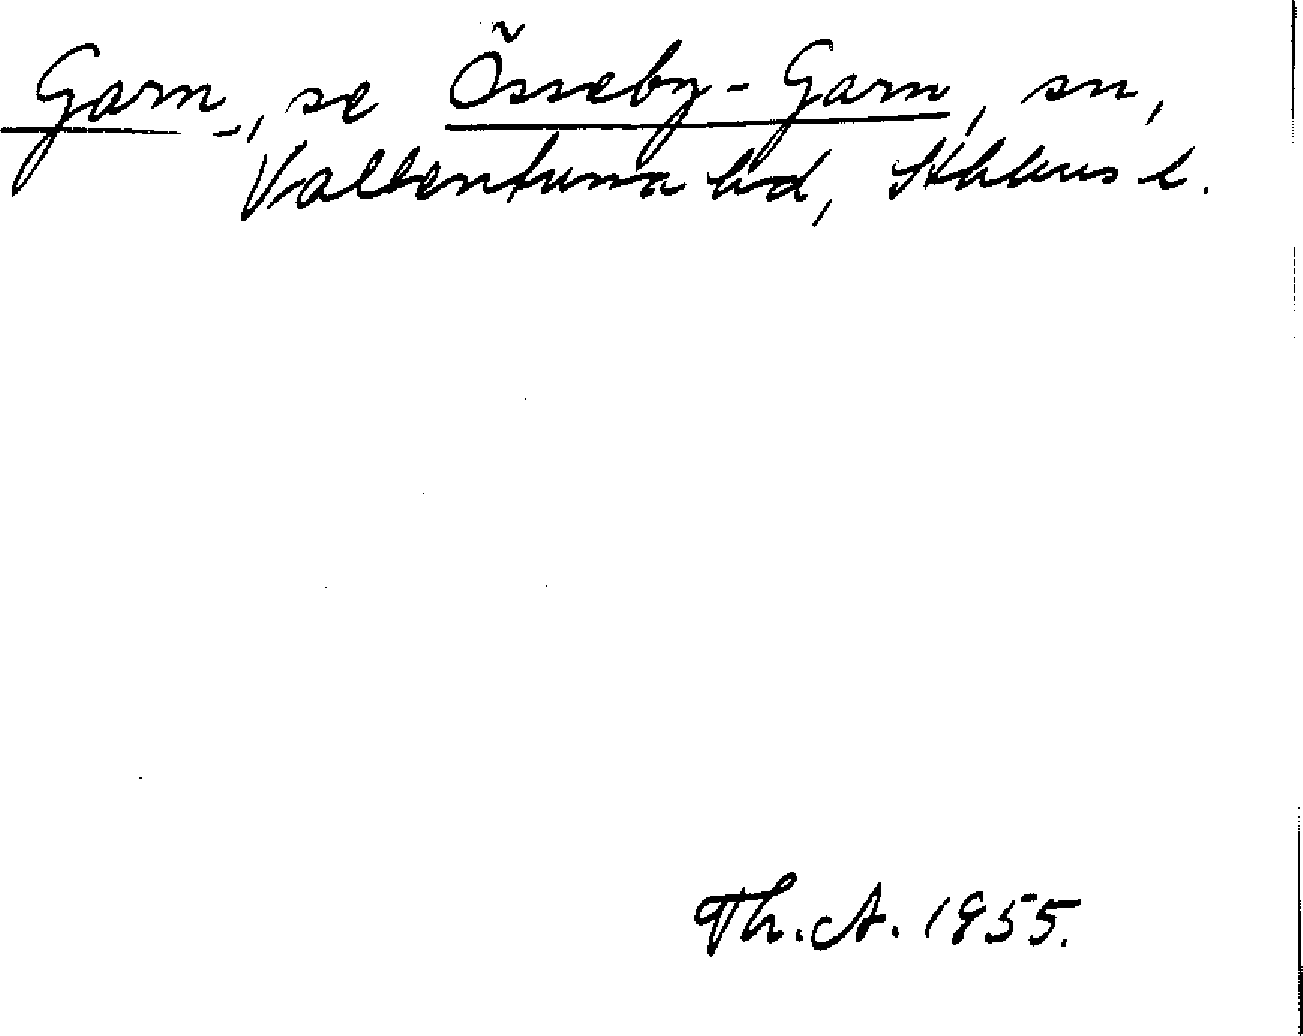 Garn, se Össeby-Garn, sn,
Vallentuna hd, Sthlms l.
Th. A. 1955.